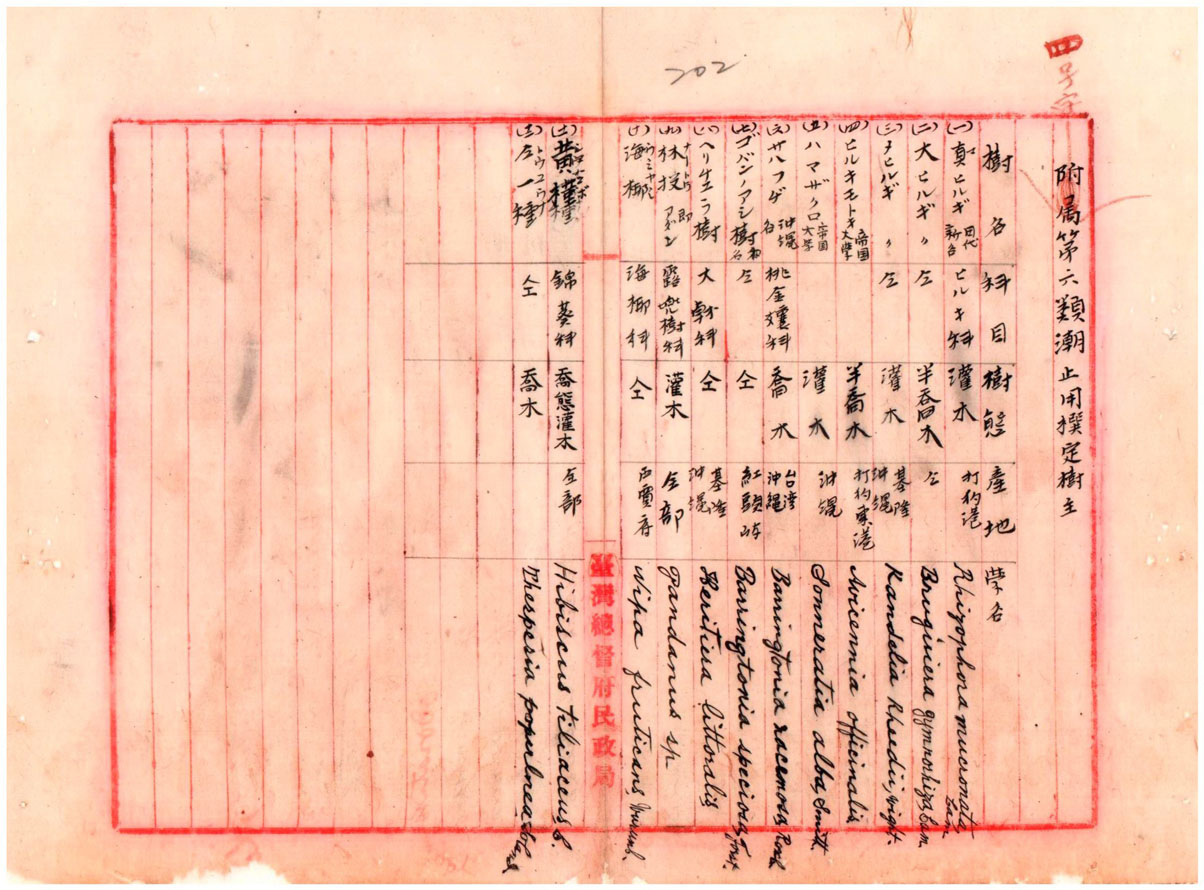 202
四号
附属第六類潮止用撰定樹主
樹名 科目 樹態 產地 学名
(一) 真ヒルギ 田代新名 ヒルギ科 灌木 打狗港 Rhizophora mucronata Lam.
(二) 大ヒルギ 〃 仝 半喬木 仝 Bruguiera gymnorhiza Lam.
(三) メヒルギ 〃 仝 灌木 基隆 沖縄 Kandelia Rheedii, Wight.
(四) ヒルギモドキ 帝国大学 半喬木 打狗東港 Avicennia officinalis
(五) ハマザクロ 帝国大学 灌木 沖縄 Sonneratia alba, Smith.
(六) サハフヂ 沖縄名 桃金嬢科 喬木 台湾 沖縄 Barringtonia racemosa, Roxb.
(七) ゴバンノアシ樹 和名 仝 仝 紅頭屿 Barringtonia speciosa, Forst.
(八) ヘリチエラ樹 大戟科 仝 基隆 沖縄 Heritiera littoralis
(九) 林投 即アダン 露兜樹科 灌木 仝部 Pandanus sp.
(十) 海椰 海椰科 仝 Nipa fruticans, Wurmb.
(十一) 黄槿 錦葵科 喬態灌木 全部 Hibiscus tiliaceus, L.
(十二) 仝一種 仝 喬木 Thespesia populnea, Soland.
臺灣總督府民政局